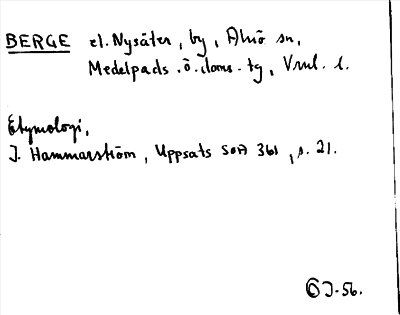 BERGE el. Nysäter, by, Alnö sn,
Medelpads ö. doms.-tg, Vnl. l.
Etymologi,
J. Hammarström, Uppsats SOA 361, s. 21.
J-56.